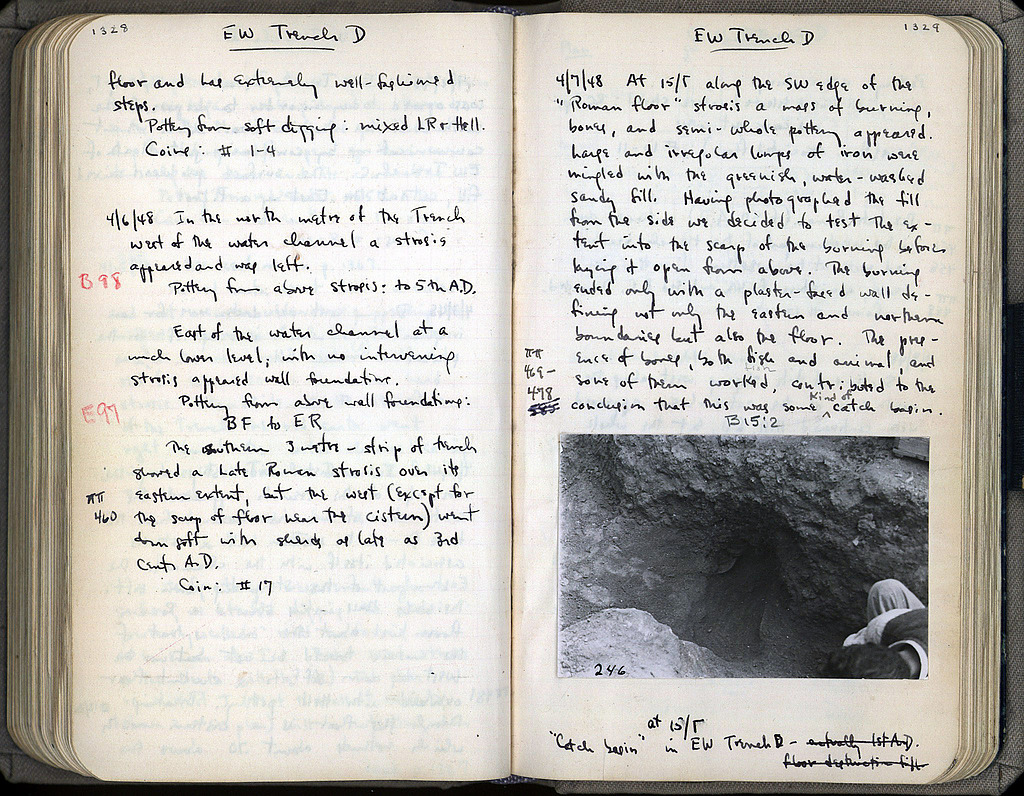 1328
EW Trench D
floor and has extremely well-fashioned
steps.
Pottery from soft digging: mixed LR + Hell.
Coins: # 1-4
4/6/48 In the north metre of the Trench
west of the water channel a strosis
appeared and was left.
B 98
Pottery from above strosis: to 5th A.D.
East of the water channel at a
much lower level, with no intervening
strosis appeared wall foundations.
E97
Pottery from above wall foundations:
BF to ER
The southern 3 metre-strip of trench
showed a Late Roman strosis over its
eastern extent, but the west (except for
ΠΠ
460
the scrap of floor near the cistern) went
down soft with sherds as late as 3rd
cent. A.D.
Coin: # 17
1329
EW Trench D
4/7/48 At 15/Γ along the SW edge of the
"Roman floor" strosis a mass of burning,
bones, and semi-whole pottery appeared.
Large and irregular lumps of iron were
mingled with the greenish, water-washed
sandy fill. Having photographed the fill
from the side we decided to test the ex-
tent into the scarp of the burning before
laying it open from above. The burning
ended only with a plaster-faced wall de-
fining not only the eastern and northern
boundaries but also the floor. The pres-
ence of bones, both fish and animal, and
fish
ΠΠ
469-
478
some of them worked, contributed to the
conclusion that this was some kind of catch basin.
B 15:2
246
at 15/Γ
"Catch basin" in EW Trench D - actually 1st A.D.
floor destruction fill.